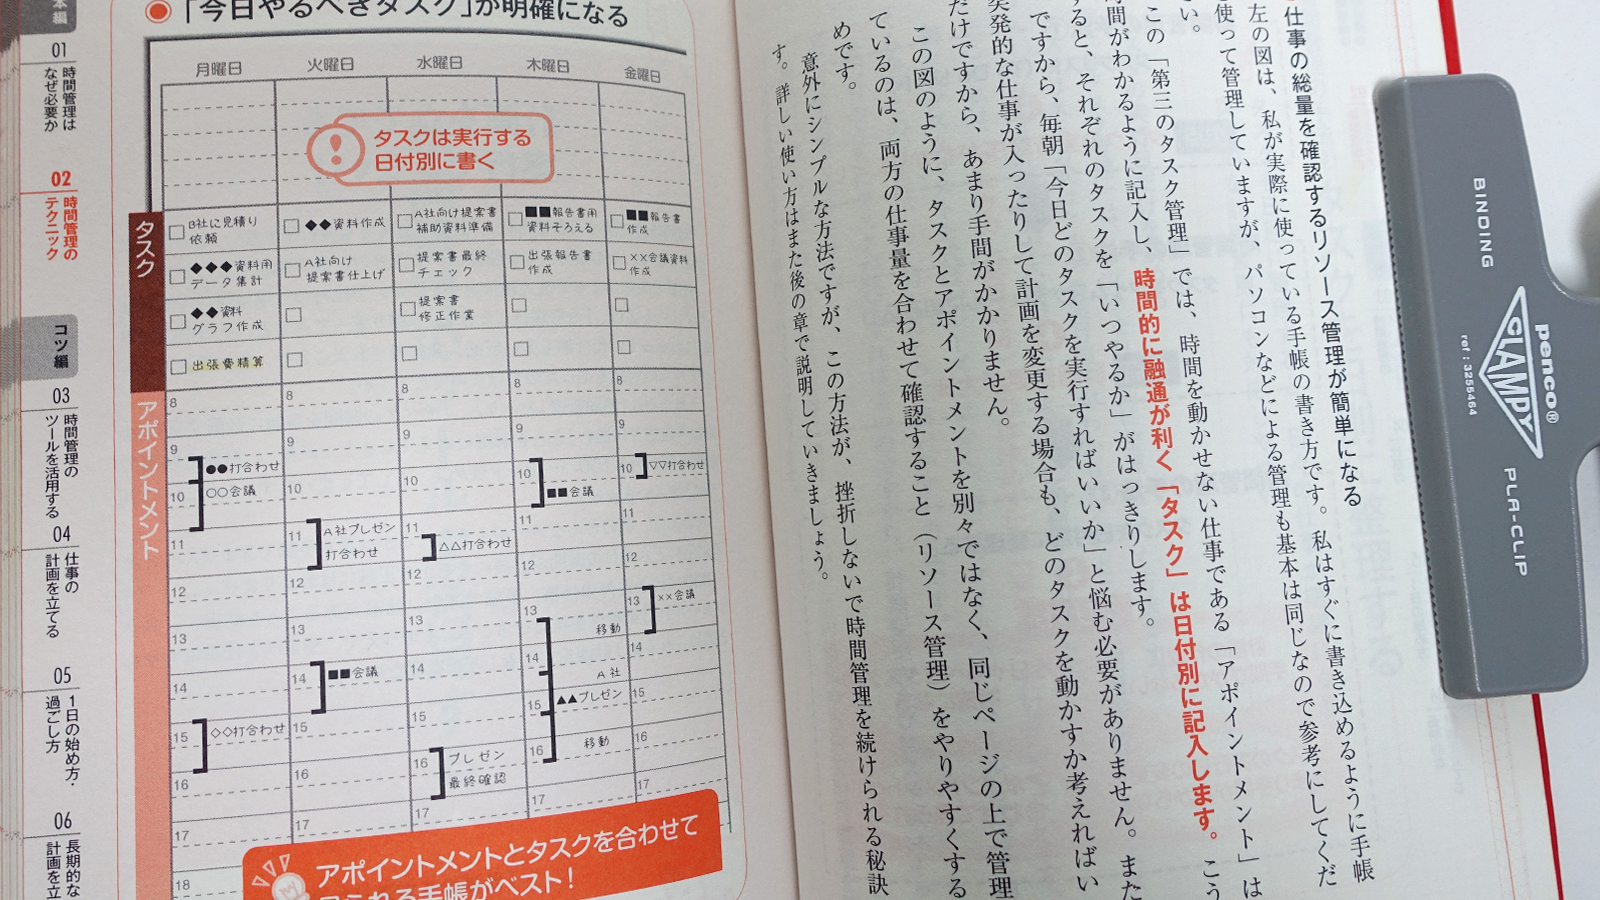 本編
01
時間管理は
なぜ必要か
02
時間管理の
テクニック
コツ編
03
時間管理の
ツールを活用する
04
仕事の
計画を立てる
05
1日の始め方・
過ごし方
06
長期的な
計画を立
「今日やるべきタスク」が明確になる
月曜日 火曜日 水曜日 木曜日 金曜日
タスクは実行する
日付別に書く
タスク
B社に見積り
依頼
◆◆◆資料用
データ集計
◆◆資料
グラフ作成
出張費精算
◆◆資料作成
A社向け
提案書仕上げ
A社向け提案書
補助資料準備
提案書最終
チェック
提案書
修正作業
■■報告書用
資料そろえる
出張報告書
作成
■■報告書
作成
××会議資料
作成
アポイントメント
8
9
●●打合わせ
10
○○会議
11
12
13
14
15
◇◇打合わせ
16
17
18
8
9
10
11
A社プレゼン
打合わせ
12
13
14
■■会議
15
16
17
8
9
10
11
△△打合わせ
12
13
14
15
16
プレゼン
最終確認
17
8
9
10
■■会議
11
12
13
移動
14
A社
15
▲▲プレゼン
16
移動
17
8
9
10
▽▽打合わせ
11
12
13
××会議
14
15
16
17
アポイントメントとタスクを合わせて
手帳がベスト！
仕事の総量を確認するリソース管理が簡単になる
左の図は、私が実際に使っている手帳の書き方です。私はすぐに書き込めるように手帳
使って管理していますが、パソコンなどによる管理も基本は同じなので参考にしてくだ
さい。
この「第三のタスク管理」では、時間を動かせない仕事である「アポイントメント」は
時間がわかるように記入し、時間的に融通が利く「タスク」は日付別に記入します。こう
すると、それぞれのタスクを「いつやるか」がはっきりします。
ですから、毎朝「今日どのタスクを実行すればいいか」と悩む必要がありません。また
突発的な仕事が入ったりして計画を変更する場合も、どのタスクを動かすか考えればい
だけですから、あまり手間がかかりません。
この図のように、タスクとアポイントメントを別々ではなく、同じページの上で管理
ているのは、両方の仕事量を合わせて確認すること（リソース管理）をやりやすくする
めです。
意外にシンプルな方法ですが、この方法が、挫折しないで時間管理を続けられる秘訣
す。詳しい使い方はまた後の章で説明していきましょう。
BINDING
penco®
CLAMPY
ref:3255464
PLA-CLIP